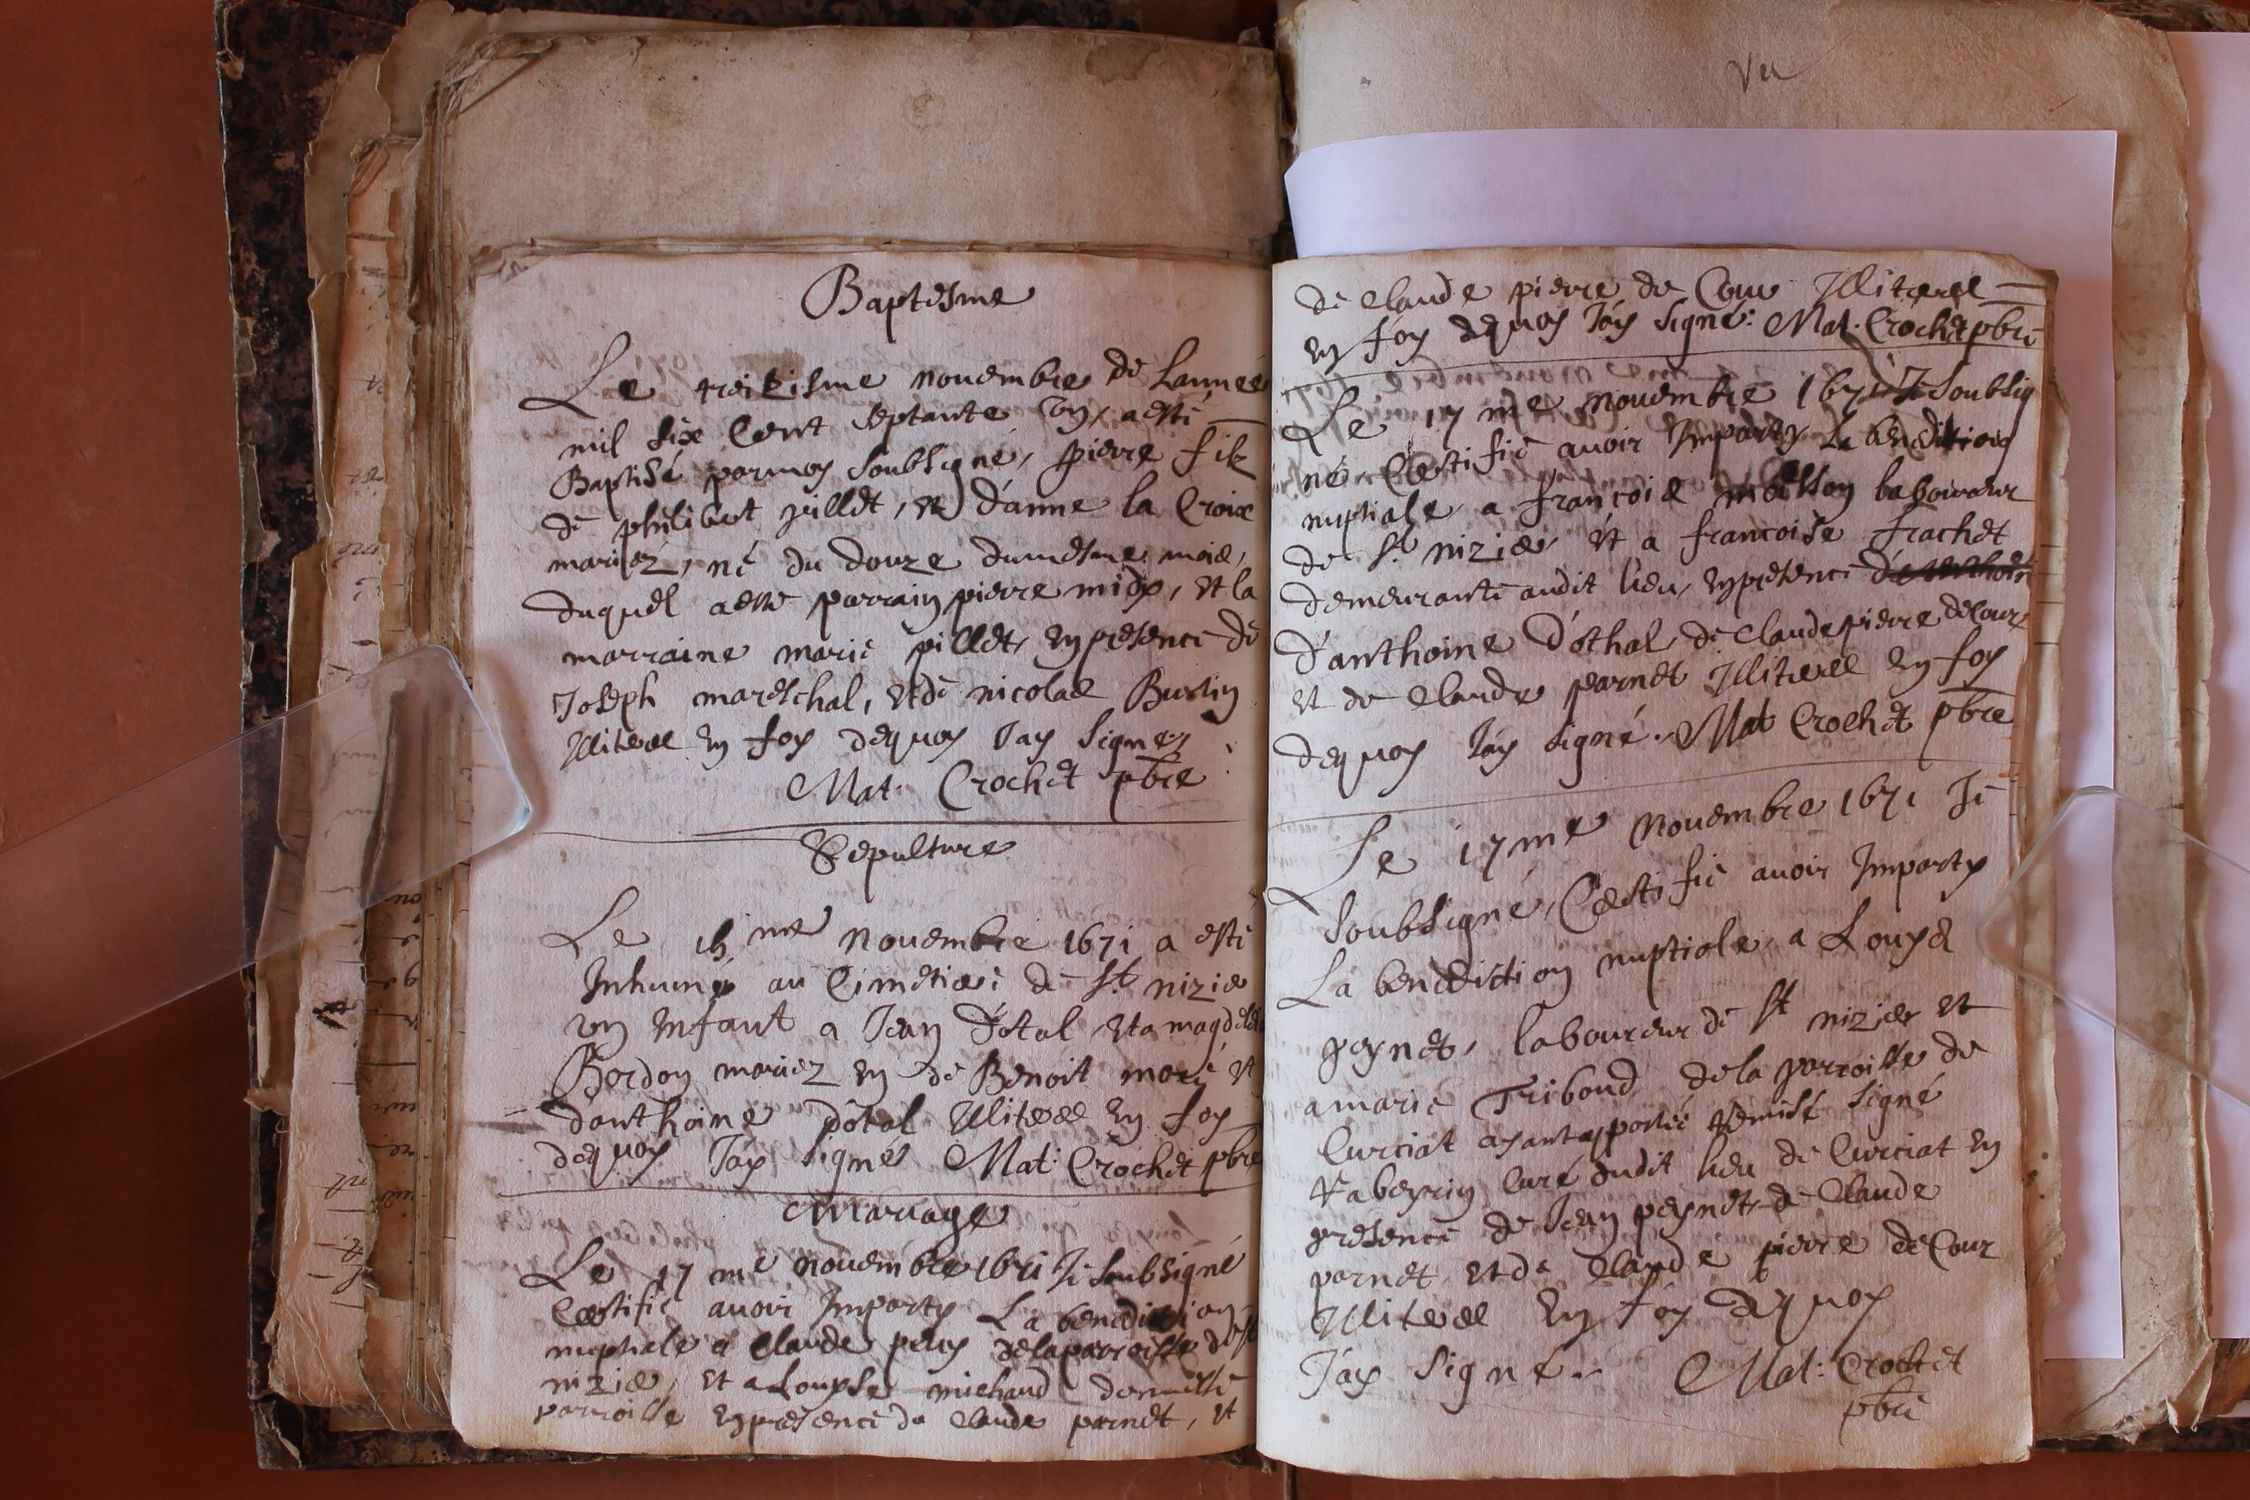 Baptesme
Le treiziesme nouembre de Lannee
mil six Cent septante Vn, a esté
Baptisé par moy soubsigné, pierre filz
de philibert pillet, et d'anne la Croix
mariez, né du douze dumesme mois,
duquel a esté parrain pierre midy, et la
marraine marie pillet, en presence de
Joseph mareschal, et de nicolas Burtin
Illiteres en foy dequoy Jay signez
Mat. Crochet pbre
Sepulture
Le 15 me nouembre 1671 a esté
Inhumé au Cimetiere de St nizier
vn Enfant a Jean D'otal et a magdelen
Bordon mariez en de Benoit moré et
danthoine dotal Illiteres En foy
dequoy Jay signé Mat: Crochet pbre
Mariage
Le 17 me nouembre 1671 Je soubsigné
Certifie auoir Imparty La benediction
nuptiale a Claude peuy delaparroisse de st
nizier, et a Louyse michaud demesme
parroisse en presence de Claude parnet, et
Vu
de Claude pierre de Cour Illiteres
en foy dequoy Jay signé: Mat. Crochet pbre
Le 17 me nouembre 1671 Je Soubsig
né Certifie auoir Imparty La benediction
nuptiale a françois laboureur
de St. nizier et a francoise frachet
demeurante audit lieu, en presence
d'anthoine d'othal, de Claude pierre decour
et de Claude parnet Illiteres en foy
dequoy Jay signé. Mat Crochet pbre
Le 17 me nouembre 1671 Je
soubsigné, Certifie auoir Imparty
La benediction nuptiale a Louys
peynet, laboureur de St nizier et
a marie Tribond dela parroisse de
Curciat ayant apporté remise signé
Rabeyrin Curé dudit lieu de Curciat en
presence de Jean peynet de Claude
parnet et de Claude pierre de Cour
Illiteres En foy dequoy
Jay signé.. Mat: Crochet
pbre